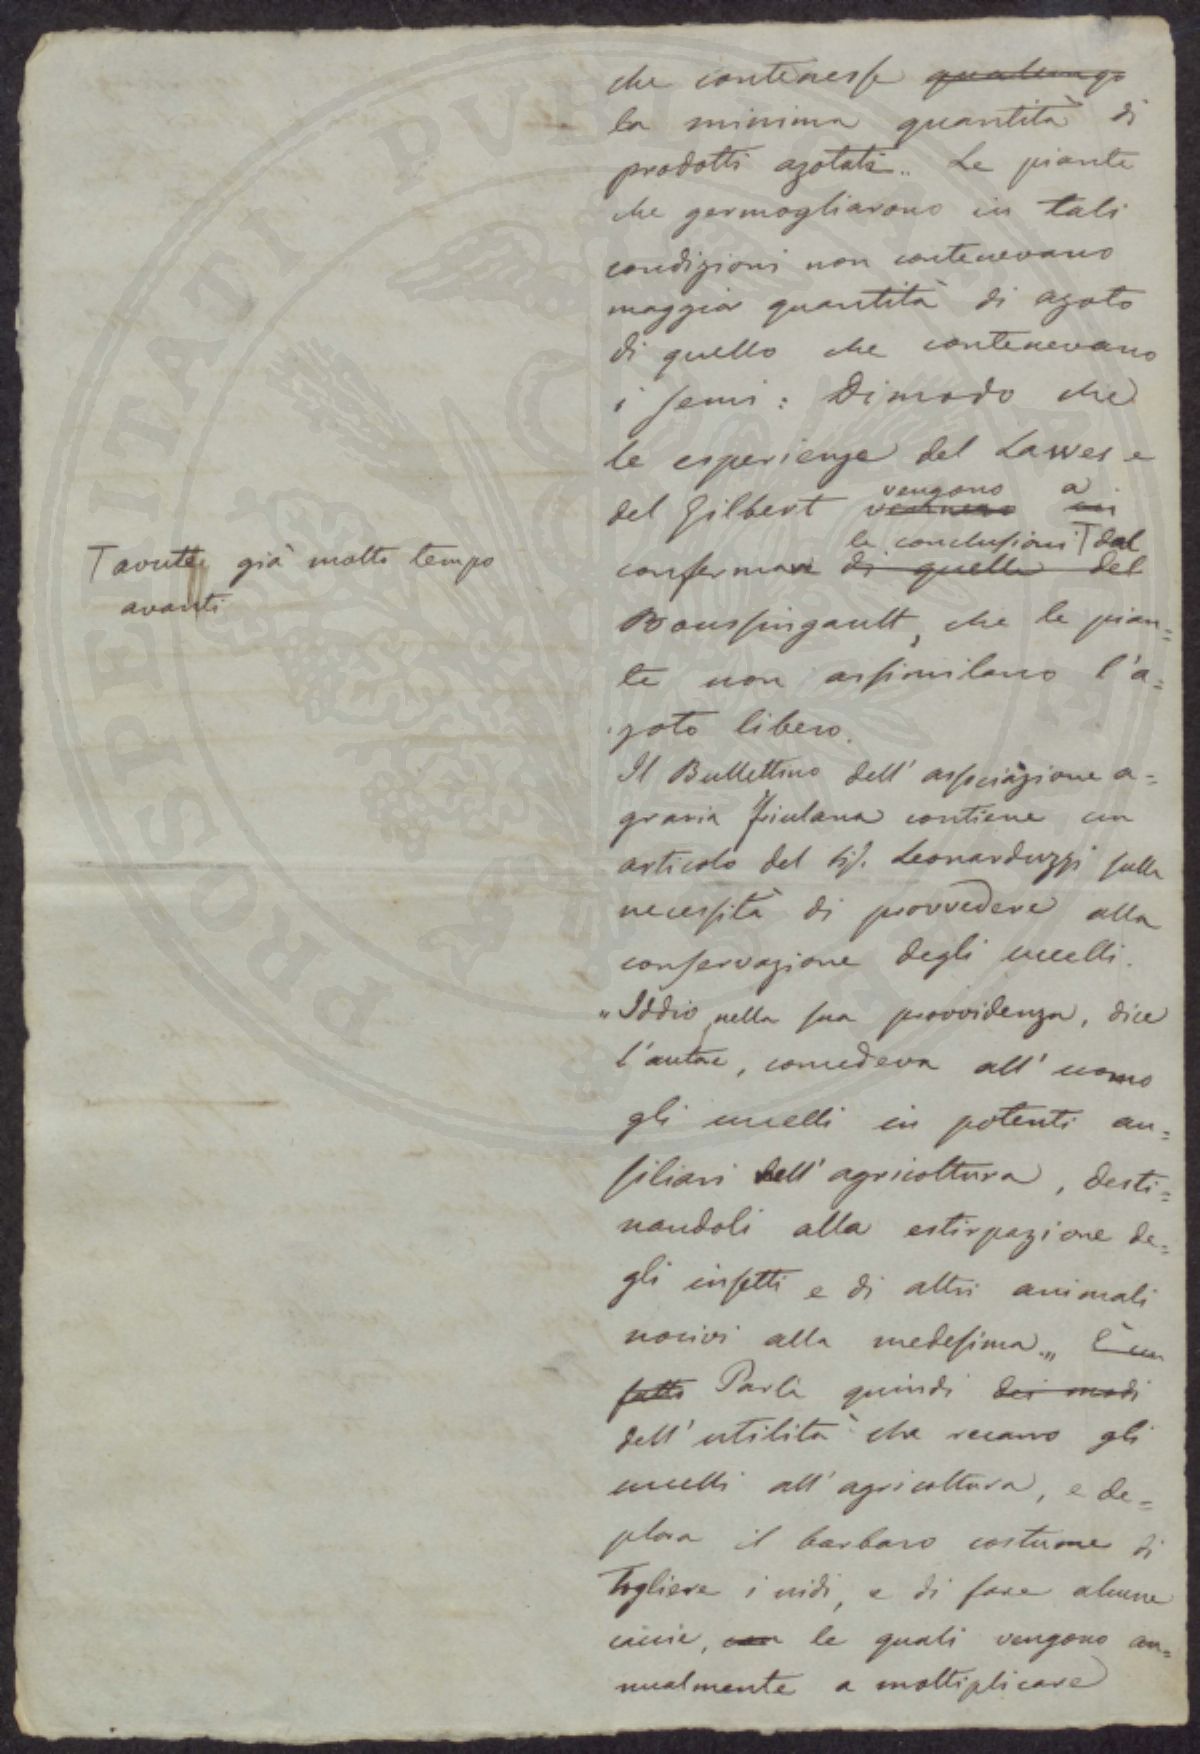 che contenesse qualunque
la minima quantità di
prodotti azotati„. Le piante
che germogliarono in tali
condizioni non contenevano
maggior quantità di azoto
di quello che contenevano
i semi: Dimodo che
le esperienze del Lawes e
vengono a
del Gilbert vennero in
le conclusioni T dal
confermare di quelle del
T avute già molto tempo
avanti
Boussingault, che le pian=
te non assimilano l'a=
zoto libero.
Il Bullettino dell'associazione a=
graria friulana contiene un
articolo del Sig. Leonarduzzi sulla
necessità di provvedere alla
conservazione degli uccelli.
„Iddio nella sua provvidenza, dice
l'autore, concedeva all'uomo
gli uccelli in potenti au=
siliari dell'agricoltura, desti=
nandoli alla estirpazione de=
gli insetti e di altri animali
nocivi alla medesima.„ È un
fatto Parla quindi dei modi
dell'utilità che recano gli
uccelli all'agricoltura, e de=
plora il barbaro costume di
togliere i nidi, e di fare alcune
caccie, con le quali vengono an=
nualmente a moltiplicare
PROSPERITATI PVBLICAE